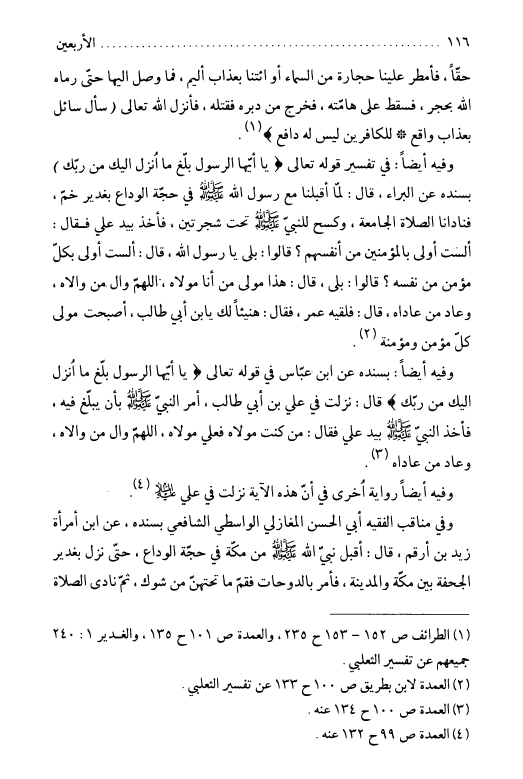 ١١٦ ........................................................ الأربعين
حقّاً ، فأمطر علينا حجارة من السماء أو ائتنا بعذاب أليم ، فما وصل اليها حتّى رماه
الله بحجر ، فسقط على هامّته ، فخرج من دبره فقتله ، فأنزل الله تعالى ﴿ سأل سائل
بعذاب واقع * للكافرين ليس له دافع ﴾(١) .
وفيه أيضاً : في تفسير قوله تعالى ﴿ يا أيّها الرسول بلّغ ما اُنزل اليك من ربّك ﴾
بسنده عن البراء ، قال : لمّا أقبلنا مع رسول الله ﷺ في حجّة الوداع بغدير خمّ ،
فنادانا الصلاة الجامعة ، وكسح للنبيّ ﷺ تحت شجرتين ، فأخذ بيد علي فـقـال :
ألست أولى بالمؤمنين من أنفسهم ؟ قالوا : بلى يا رسول الله ، قال : ألست أولى بكلّ
مؤمن من نفسه ؟ قالوا : بلى ، قال : هذا مولى من أنا مولاه ، اللهمّ وال من والاه ،
وعاد من عاداه ، قال : فلقيه عمر ، فقال : هنيئاً لك يابن أبي طالب ، أصبحت مولى
كلّ مؤمن ومؤمنة (٢) .
وفيه أيضاً : بسنده عن ابن عبّاس في قوله تعالى ﴿ يا أيّها الرسول بلّغ ما اُنزل
اليك من ربّك ﴾ قال : نزلت في علي بن أبي طالب ، أمر النبيّ ﷺ بأن يبلّغ فيه ،
فأخذ النبيّ ﷺ بيد علي فقال : من كنت مولاه فعلي مولاه ، اللهمّ وال من والاه ،
وعاد من عاداه (٣) .
وفيه أيضاً رواية اُخرى في أنّ هذه الآية نزلت في علي ﵇ (٤) .
وفي مناقب الفقيه أبي الحسن المغازلي الواسطي الشافعي بسنده ، عن ابن امرأة
زيد بن أرقم ، قال : أقبل نبيّ الله ﷺ من مكّة في حجّة الوداع ، حتّى نزل بغدير
الجحفة بين مكّة والمدينة ، فأمر بالدوحات فقمّ ما تحتهنّ من شوك ، ثمّ نادى الصلاة
(١) الطرائف ص ١٥٢ - ١٥٣ ح ٢٣٥ ، والعمدة ص ١٠١ ح ١٣٥ ، والغـدير ١ : ٢٤٠
جميعهم عن تفسير الثعلبي .
(٢) العمدة لابن بطريق ص ١٠٠ ح ١٣٣ عن تفسير الثعلبي .
(٣) العمدة ص ١٠٠ ح ١٣٤ عنه .
(٤) العمدة ص ٩٩ ح ١٣٢ عنه .